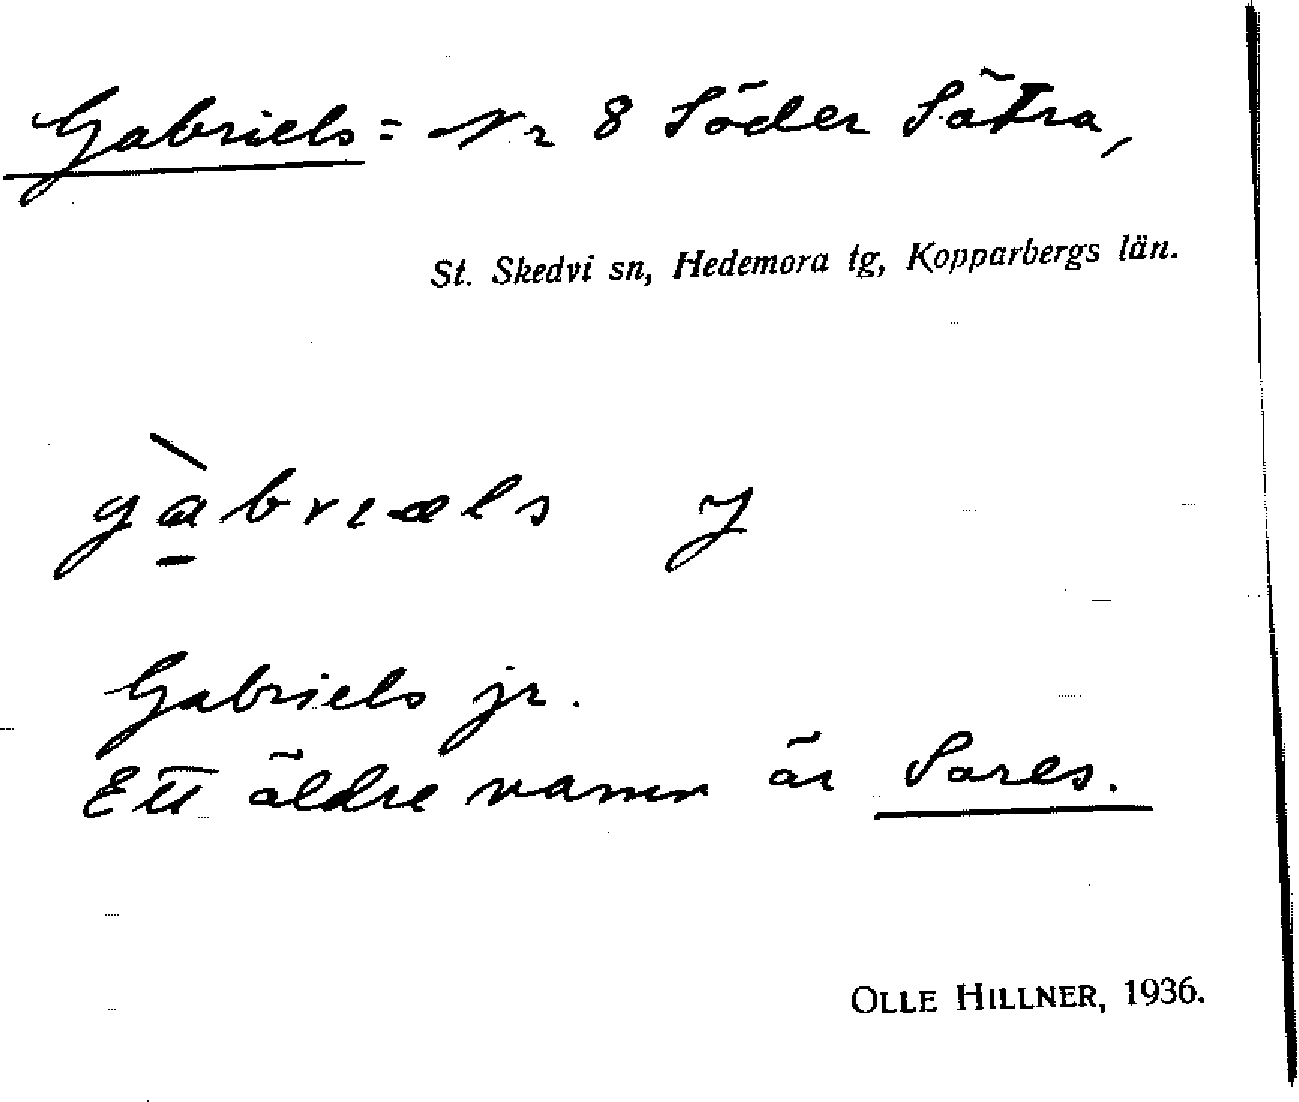 Gabriels = Nr 8 Söder Sätra,
St. Skedvi sn, Hedemora tg, Kopparbergs län.
gàbriæls J
Gabriels jr.
Ett äldre namn är Sares.
OLLE HILLNER, 1936.